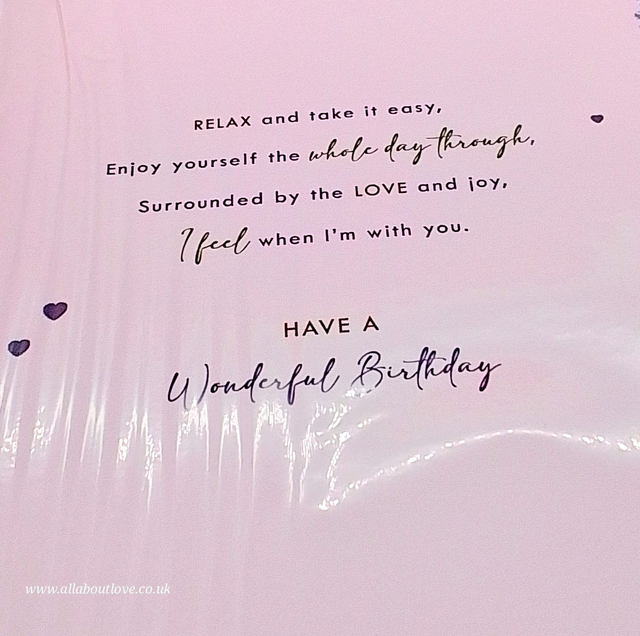 RELAX and take it easy,
Enjoy yourself the whole day through,
Surrounded by the LOVE and joy,
I feel when I'm with you.
HAVE A
Wonderful Birthday
www.allaboutlove.co.uk